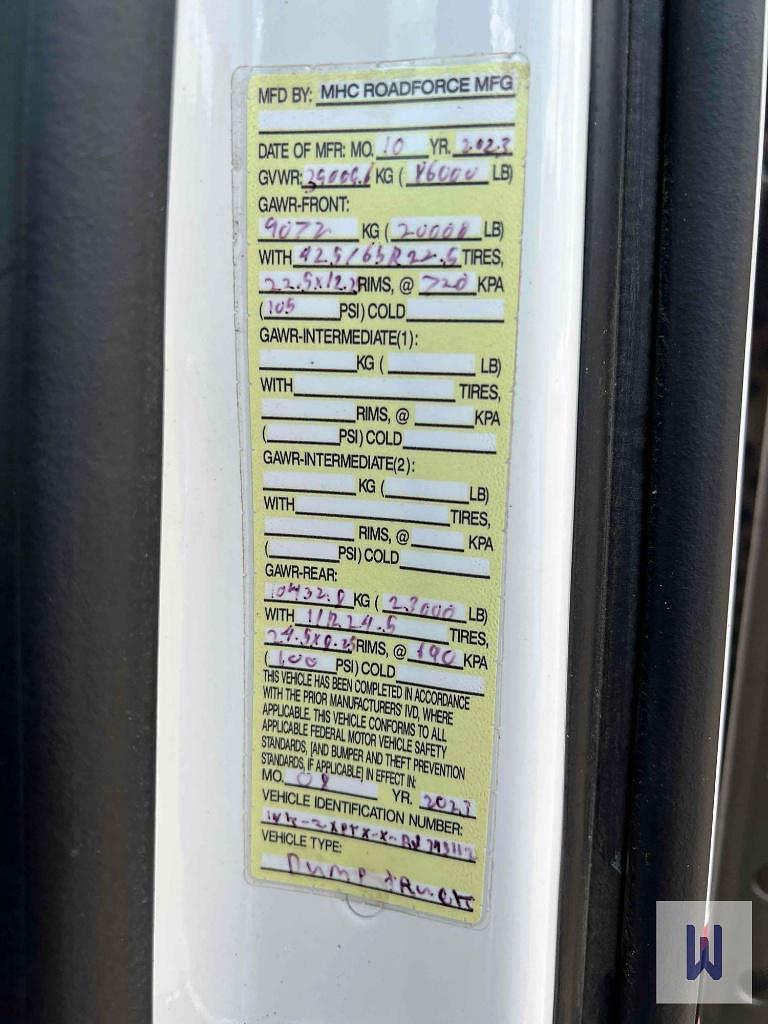 MFD BY: MHC ROADFORCE MFG
DATE OF MFR: MO. 10 YR. 2023
GVWR: KG ( LB)
GAWR-FRONT:
9072 KG ( 20000 LB)
WITH 425/65R22.5 TIRES,
22.5X12.2 RIMS, @ 720 KPA
( 105 PSI) COLD
GAWR-INTERMEDIATE(1):
KG ( LB)
WITH TIRES,
RIMS, @ KPA
( PSI) COLD
GAWR-INTERMEDIATE(2):
KG ( LB)
WITH TIRES,
RIMS, @ KPA
( PSI) COLD
GAWR-REAR:
10432.0 KG ( 23000 LB)
WITH 11R24.5 TIRES,
RIMS, @ KPA
( 100 PSI) COLD
THIS VEHICLE HAS BEEN COMPLETED IN ACCORDANCE
WITH THE PRIOR MANUFACTURERS' IVD, WHERE
APPLICABLE. THIS VEHICLE CONFORMS TO ALL
APPLICABLE FEDERAL MOTOR VEHICLE SAFETY
STANDARDS, [AND BUMPER AND THEFT PREVENTION
STANDARDS, IF APPLICABLE] IN EFFECT IN:
MO. YR. 2023
VEHICLE IDENTIFICATION NUMBER:
VEHICLE TYPE:
DUMP TRUCK
W